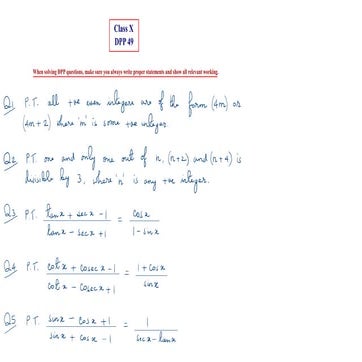 Class X
DPP 49
When solving DPP questions, make sure you always write proper statements and show all relevant working.
Q1 P.T. all +ve even integers are of the form (4m) or
(4m+2) where 'm' is some +ve integer.
Q2 P.T. one and only one out of n, (n+2) and (n+4) is
divisible by 3, where 'n' is any +ve integer.
Q3 P.T. (tanx + secx - 1)/(tanx - secx + 1) = cosx/(1 - sinx)
Q4 P.T. (cotx + cosecx - 1)/(cotx - cosecx + 1) = (1 + cosx)/sinx
Q5 P.T. (sinx - cosx + 1)/(sinx + cosx - 1) = 1/(secx - tanx)